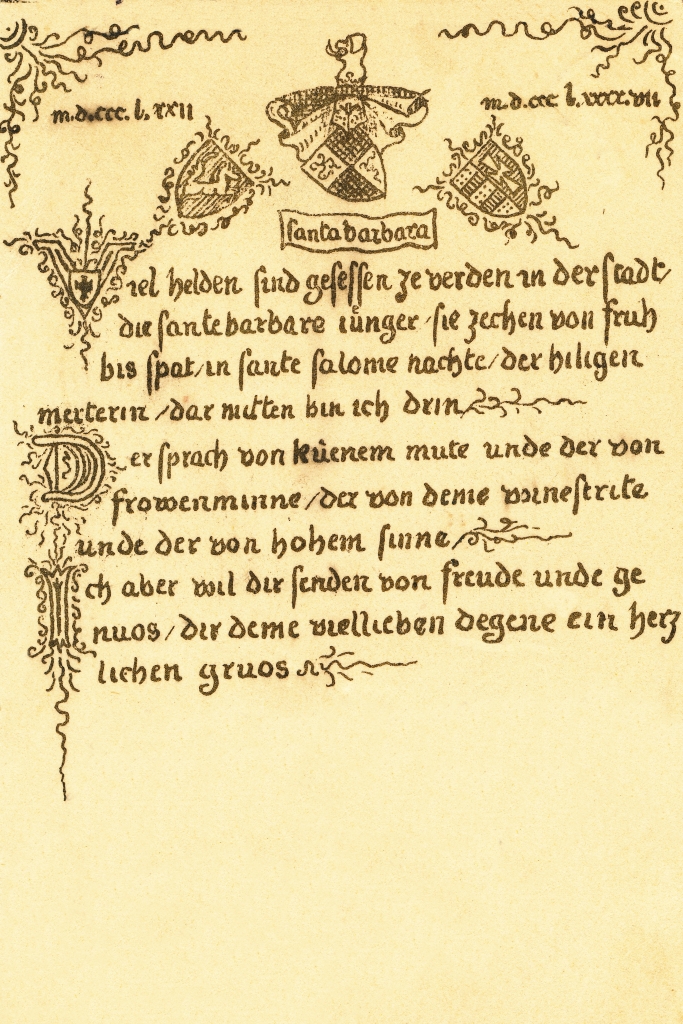 m.d.ccc.l.xxii
m.d.ccc l.xxxx.vii
santa barbara
Viel helden sind gesessen ze verden in der stadt/
die sante barbare iünger/sie zechen von fruh
bis spat/in sante salome nachte/der hiligen
merterin/dar mitten bin ich drin
Der sprach von küenem mute unde der von
frowenminne/der von deme winestrite
unde der von hohem sinne/
Ich aber wil dir senden von freude unde ge
nuos/dir deme viellieben degene ein herz
lichen gruos